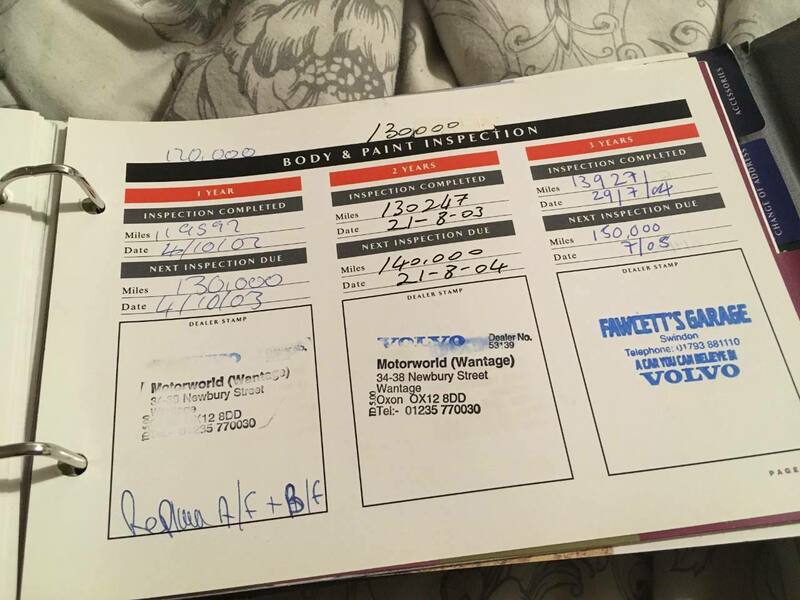 120,000
130,000
BODY & PAINT INSPECTION
1 YEAR
INSPECTION COMPLETED
Miles 119592
Date 4/10/02
NEXT INSPECTION DUE
Miles 130,000
Date 4/10/03
DEALER STAMP
Motorworld (Wantage)
34-38 Newbury Street
Wantage
OX12 8DD
01235 770030
A/F + B/F
2 YEARS
INSPECTION COMPLETED
Miles 130247
Date 21-8-03
NEXT INSPECTION DUE
Miles 140,000
Date 21-8-04
DEALER STAMP
VOLVO Dealer No.
53139
Motorworld (Wantage)
34-38 Newbury Street
Wantage
Oxon OX12 8DD
Tel:- 01235 770030
3 YEARS
INSPECTION COMPLETED
Miles 139271
Date 29/7/04
NEXT INSPECTION DUE
Miles 150,000
Date 7/05
DEALER STAMP
FAWCETT'S GARAGE
Swindon
Telephone: 01793 881110
A CAR YOU CAN BELIEVE IN
VOLVO
PAGE
ACCESSORIES
CHANGE OF ADDRESS